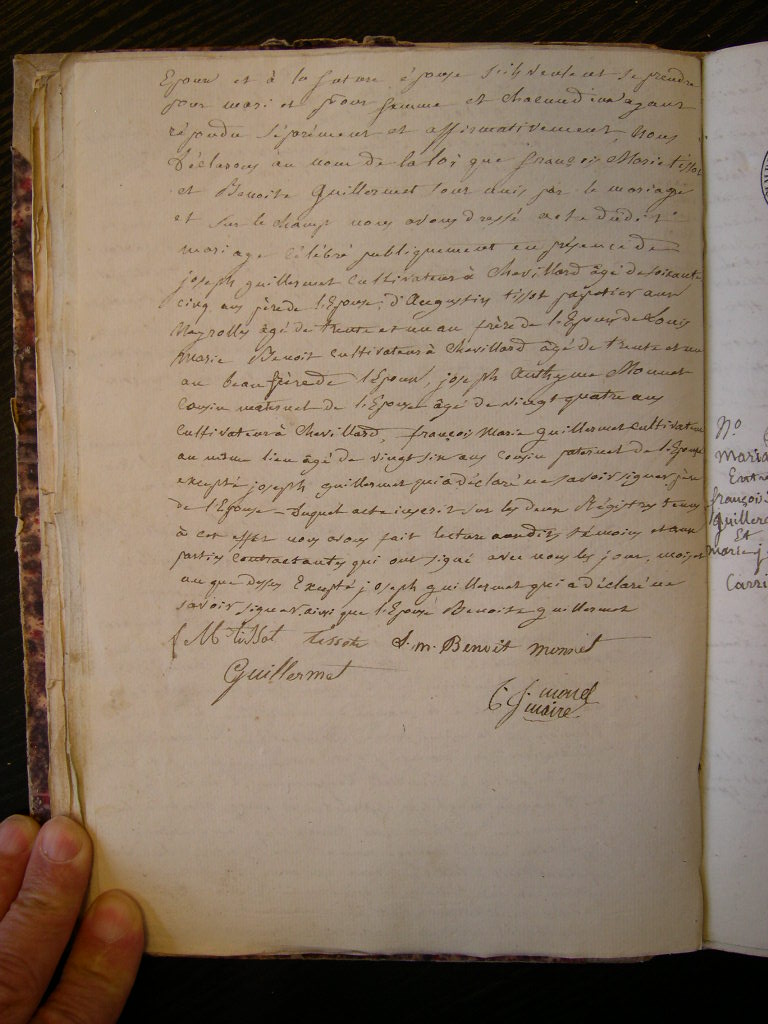 Epoux et à la future épouse s'ils veulent se prendre
pour mari et pour femme et chacun d'eux ayant
répondu séprément et affirmativement, nous
Déclarons au nom de la loi que françois Marie tissot
et Benoite Guillermet sont unis par le mariage
et sur le champ nous avons dressé acte dudit
mariage célébré publiquement en présence de
joseph guillermet cultivateur à Chevillard âgé de soixante
cinq ans père de l'Epouse, d'Augustin tissot papetier aux
Neyrolles âgé de trente et un an frère de l'Epoux de Louis
marie Benoit cultivateur à Chevillard âgé de trente et un
an beau frère de l'Epoux, joseph Anthyme Monnet
Cousin maternel de l'Epouse âgé de vingt quatre ans
Cultivateur à Chevillard, françois Marie guillermet cultivateur
au même lieu âgé de vingt six ans cousin paternel de l'Epouse
excepté joseph guillermet qui a déclaré ne savoir signer père
de l'Epouse - Duquel acte inscrit sur les deux Régistres tenus
à cet effet nous avons fait lecture auxdits témoins et aux
parties contractantes qui ont signé avec nous les jour, mois et
an que dessus Excepté joseph guillermet qui a déclaré ne
savoir signer ainsi que l'Epouse Benoite guillermet
f M tissot tissot L. m. Benoit monnet
Guillermet
maire
N°
Maria
Entre
françois
Guiller
Et
marie j
Carri